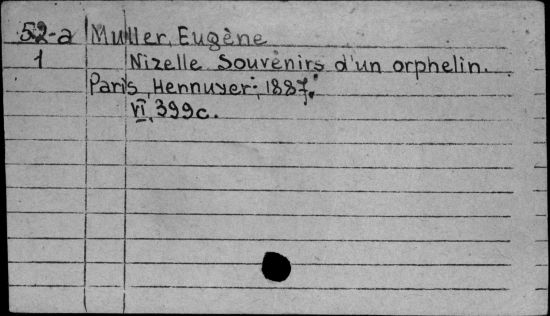 52-a Muller, Eugène
1 Nizelle Souvenirs d'un orphelin.
Paris, Hennuyer, 1887.
VI, 399c.